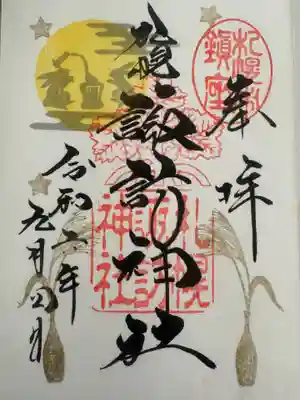 札幌
鎮座
奉拝
札幌諏訪神社
札幌
諏訪
神社
令和六年
九月四日